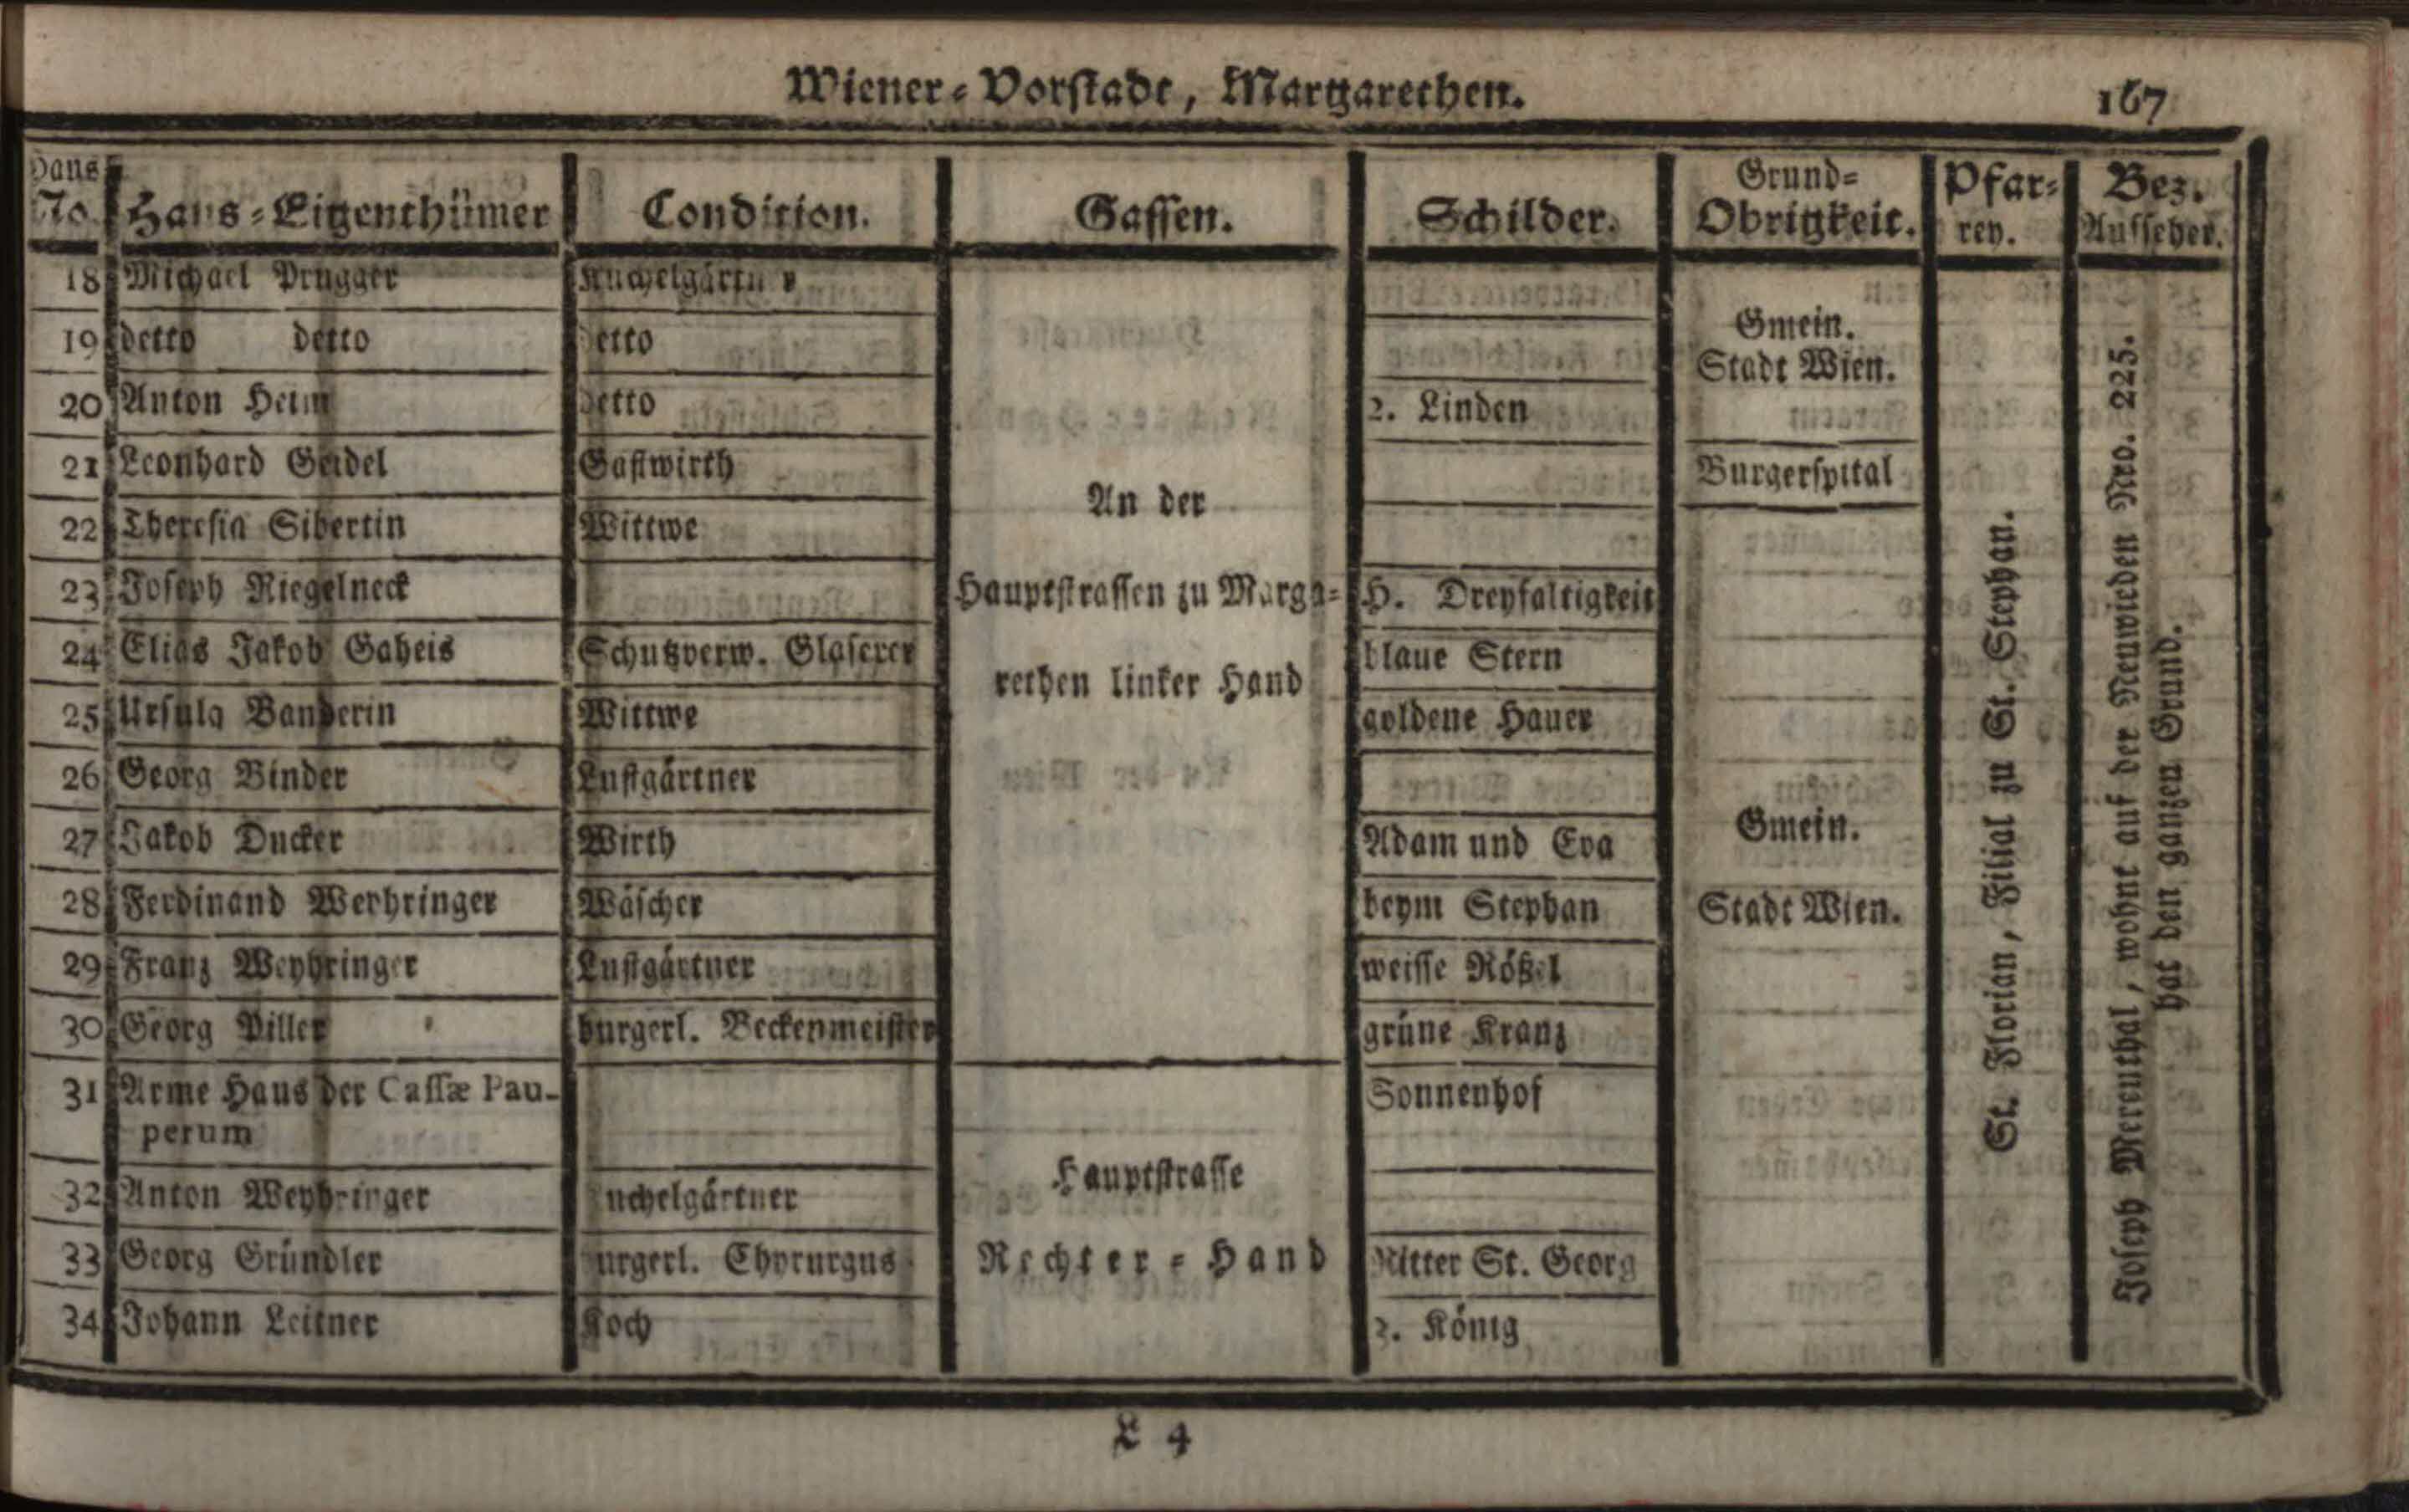 Wiener-Vorstadt, Margarethen. 167
Haus No. Haus-Eigenthümer Condition. Gassen. Schilder. Grund-Obrigkeit. Pfarrey. Bez. Aufseher.
18 Michael Prugger Kuchelgärtner
19 detto detto detto
Gmein.
Stadt Wien.
20 Anton Heim detto 2. Linden
21 Leonhard Geidel Gastwirth Burgerspital
An der
22 Theresia Sibertin Wittwe
23 Joseph Riegelneck Hauptstrassen zu Marga- H. Dreyfaltigkeit
24 Elias Jakob Gaheis Schutzverw. Glaserer blaue Stern
rethen linker Hand
25 Ursula Banderin Wittwe goldene Hauer
26 Georg Binder Lustgärtner
27 Jakob Ducker Wirth Adam und Eva Gmein.
28 Ferdinand Weyhringer Wäscher beym Stephan Stadt Wien.
29 Franz Weyhringer Lustgärtner weisse Rößel
30 Georg Piller burgerl. Beckenmeister grüne Kranz
31 Arme Haus der Cassæ Pau- Sonnenhof
perum
Hauptstrasse
32 Anton Weyhringer Kuchelgärtner
33 Georg Gründler burgerl. Chyrurgus Rechter-Hand Ritter St. Georg
34 Johann Leitner Koch 2. König
St. Florian, Filial zu St. Stephan.
Joseph Merenthal, wohnt auf der Neuwieden Nro. 225.
hat den ganzen Grund.
L 4